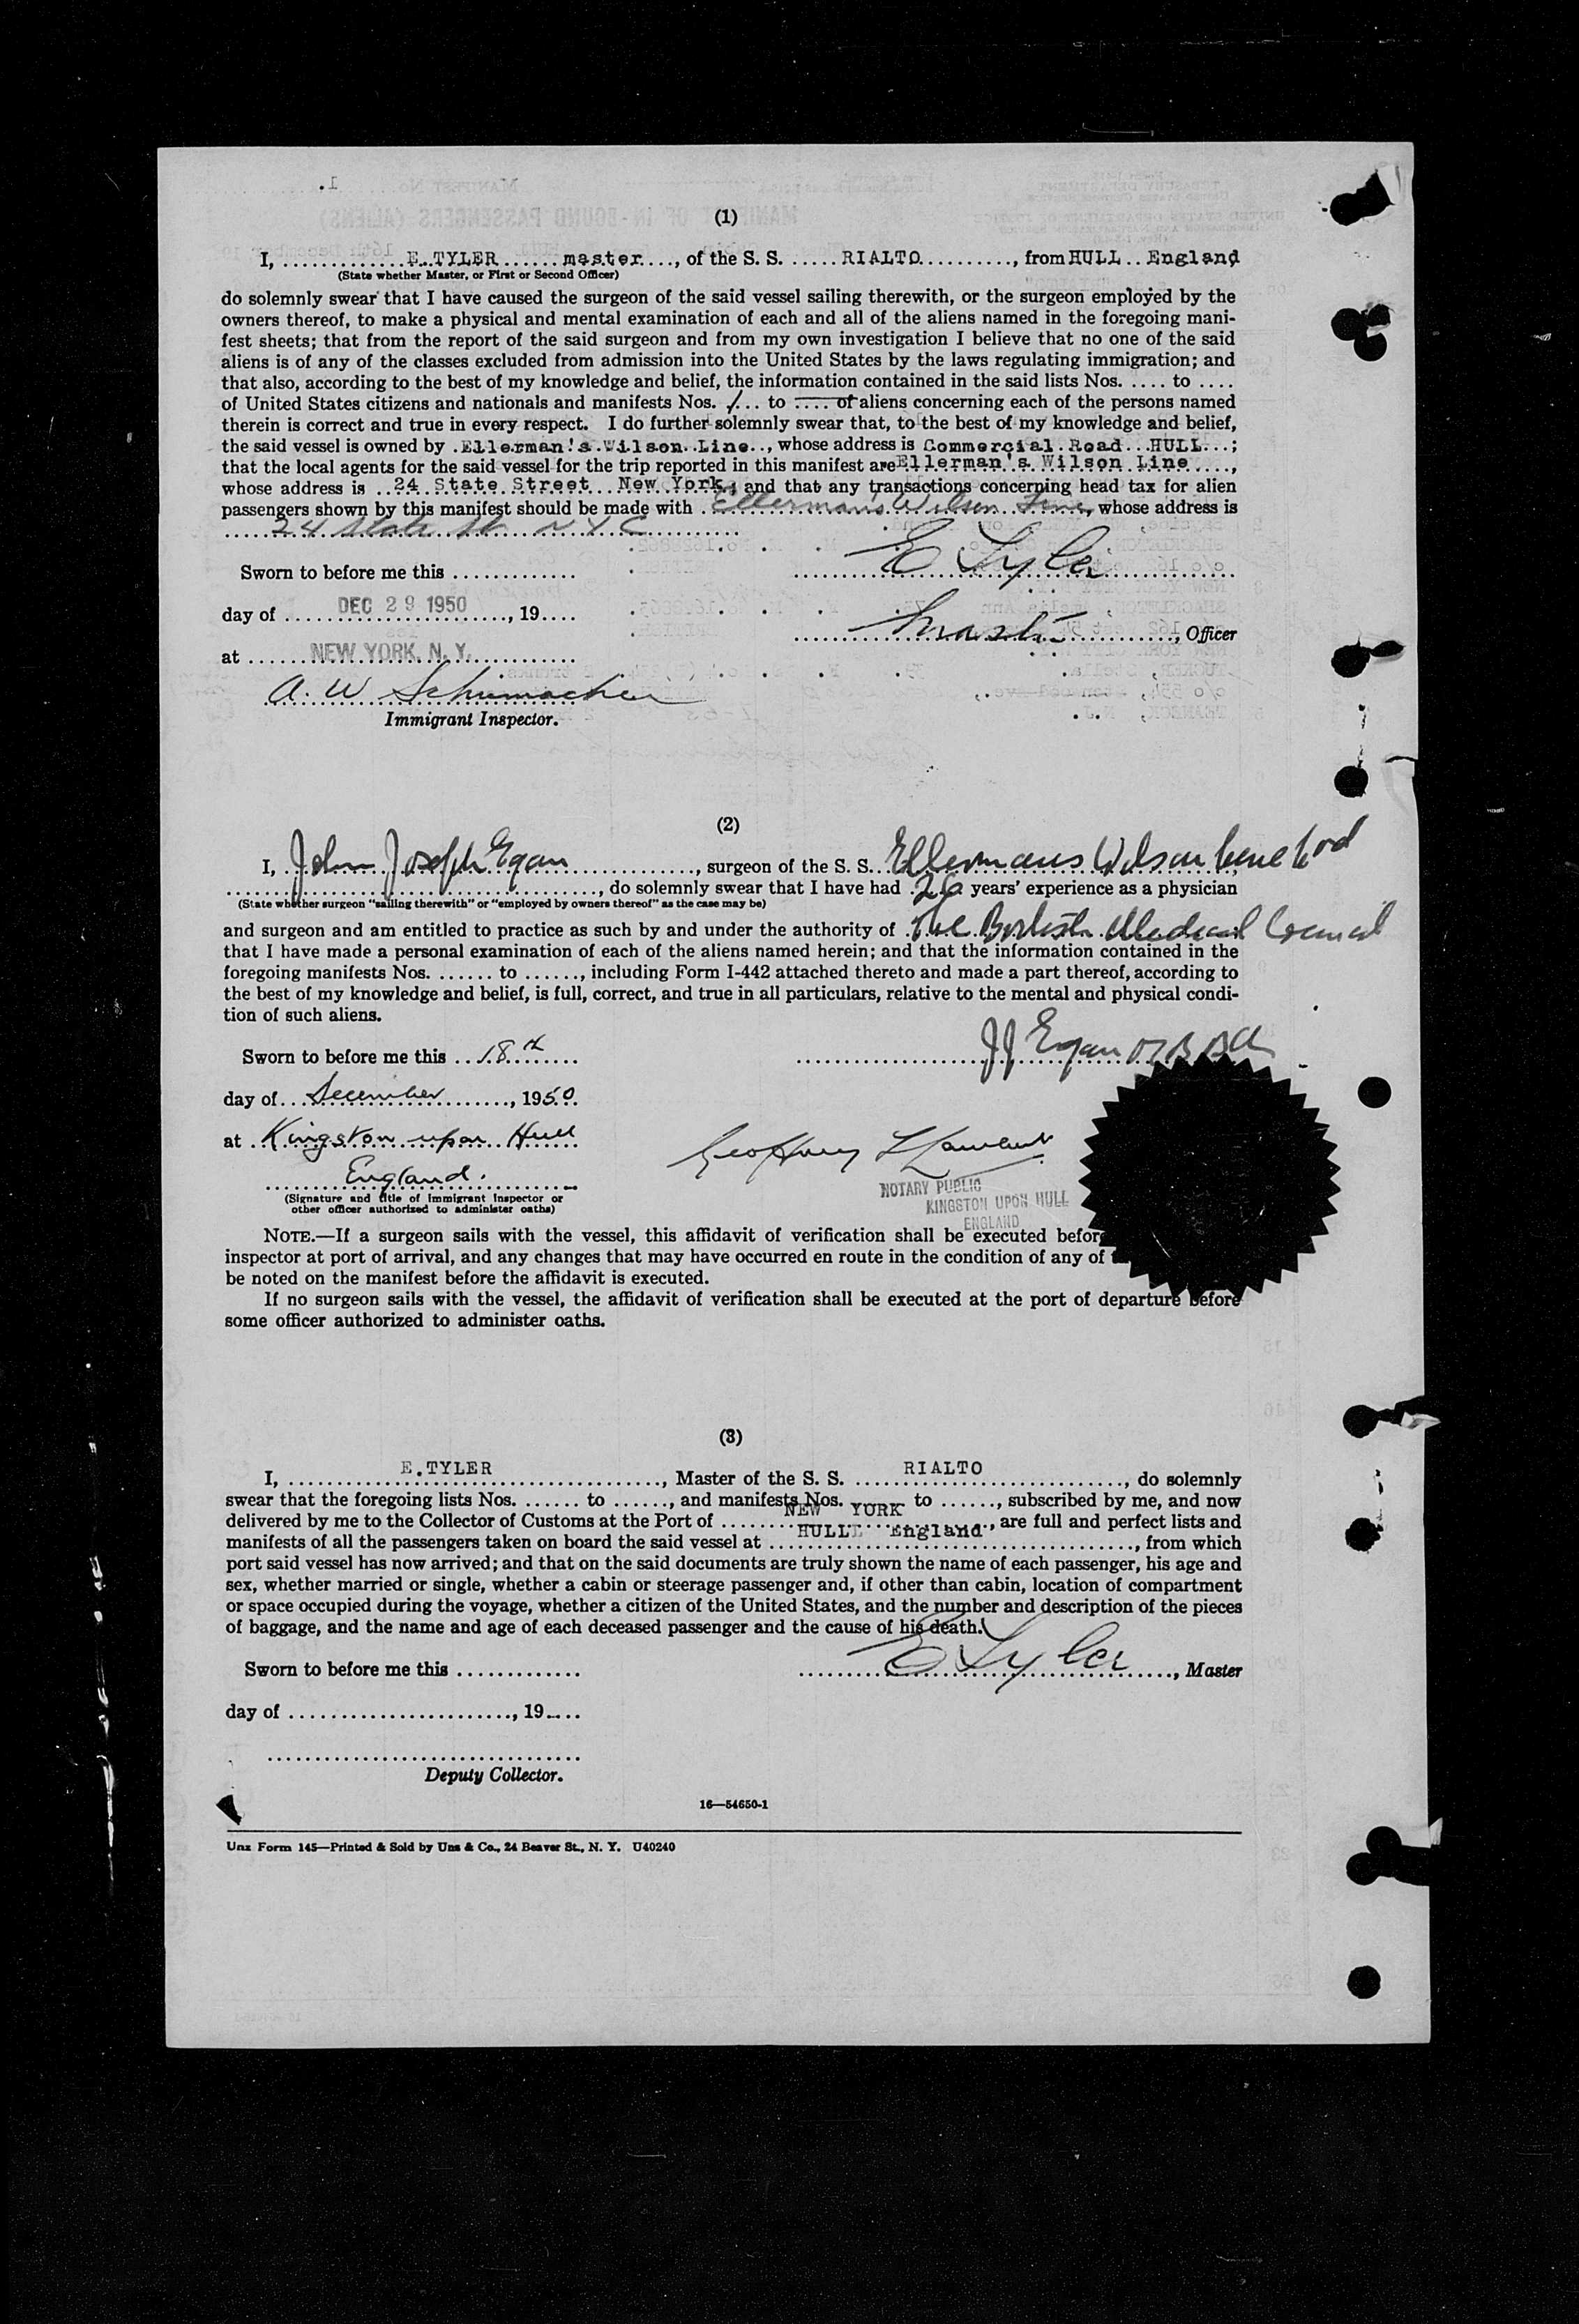 (1)
I, ..............E. TYLER.......master...., of the S. S. ......RIALTO..........., from HULL .. England
(State whether Master, or First or Second Officer)
do solemnly swear that I have caused the surgeon of the said vessel sailing therewith, or the surgeon employed by the
owners thereof, to make a physical and mental examination of each and all of the aliens named in the foregoing mani-
fest sheets; that from the report of the said surgeon and from my own investigation I believe that no one of the said
aliens is of any of the classes excluded from admission into the United States by the laws regulating immigration; and
that also, according to the best of my knowledge and belief, the information contained in the said lists Nos. .... to ....
of United States citizens and nationals and manifests Nos. 1... to .... of aliens concerning each of the persons named
therein is correct and true in every respect. I do further solemnly swear that, to the best of my knowledge and belief,
the said vessel is owned by .Ellerman's.Wilson..Line..., whose address is Commercial.Road...HULL...;
that the local agents for the said vessel for the trip reported in this manifest are Ellerman's Wilson Line.....,
whose address is ..24 State Street...New York., and that any transactions concerning head tax for alien
passengers shown by this manifest should be made with Ellerman's Wilson Line, whose address is
24 State St. N Y C
Sworn to before me this ............. E Tyler
day of DEC 29 1950, 19.... Master, Officer
at ......NEW YORK, N. Y.
A. W Schumacher
Immigrant Inspector.
(2)
I, John Joseph Egan, surgeon of the S. S. Ellermans Wilson Line
......................................., do solemnly swear that I have had .26 years' experience as a physician
(State whether surgeon "sailing therewith" or "employed by owners thereof" as the case may be)
and surgeon and am entitled to practice as such by and under the authority of The British Medical Council
that I have made a personal examination of each of the aliens named herein; and that the information contained in the
foregoing manifests Nos. ....... to ......, including Form I-442 attached thereto and made a part thereof, according to
the best of my knowledge and belief, is full, correct, and true in all particulars, relative to the mental and physical condi-
tion of such aliens.
Sworn to before me this ..18th J J Egan
day of December, 1950
at Kingston upon Hull Geoffrey
England.
(Signature and title of immigrant inspector or
other officer authorized to administer oaths)
NOTARY PUBLIC
KINGSTON UPON HULL
ENGLAND
NOTE.—If a surgeon sails with the vessel, this affidavit of verification shall be executed before
inspector at port of arrival, and any changes that may have occurred en route in the condition of any of
be noted on the manifest before the affidavit is executed.
If no surgeon sails with the vessel, the affidavit of verification shall be executed at the port of departure before
some officer authorized to administer oaths.
(3)
I, ............E.TYLER................, Master of the S. S. .....RIALTO..............., do solemnly
swear that the foregoing lists Nos. ....... to ......, and manifests Nos. to ......, subscribed by me, and now
delivered by me to the Collector of Customs at the Port of NEW YORK, are full and perfect lists and
manifests of all the passengers taken on board the said vessel at HULL England, from which
port said vessel has now arrived; and that on the said documents are truly shown the name of each passenger, his age and
sex, whether married or single, whether a cabin or steerage passenger and, if other than cabin, location of compartment
or space occupied during the voyage, whether a citizen of the United States, and the number and description of the pieces
of baggage, and the name and age of each deceased passenger and the cause of his death.
Sworn to before me this ............. E Tyler, Master
day of ......................., 19.....
Deputy Collector.
16—54650-1
Unz Form 145—Printed & Sold by Unz & Co., 24 Beaver St., N. Y. U40240